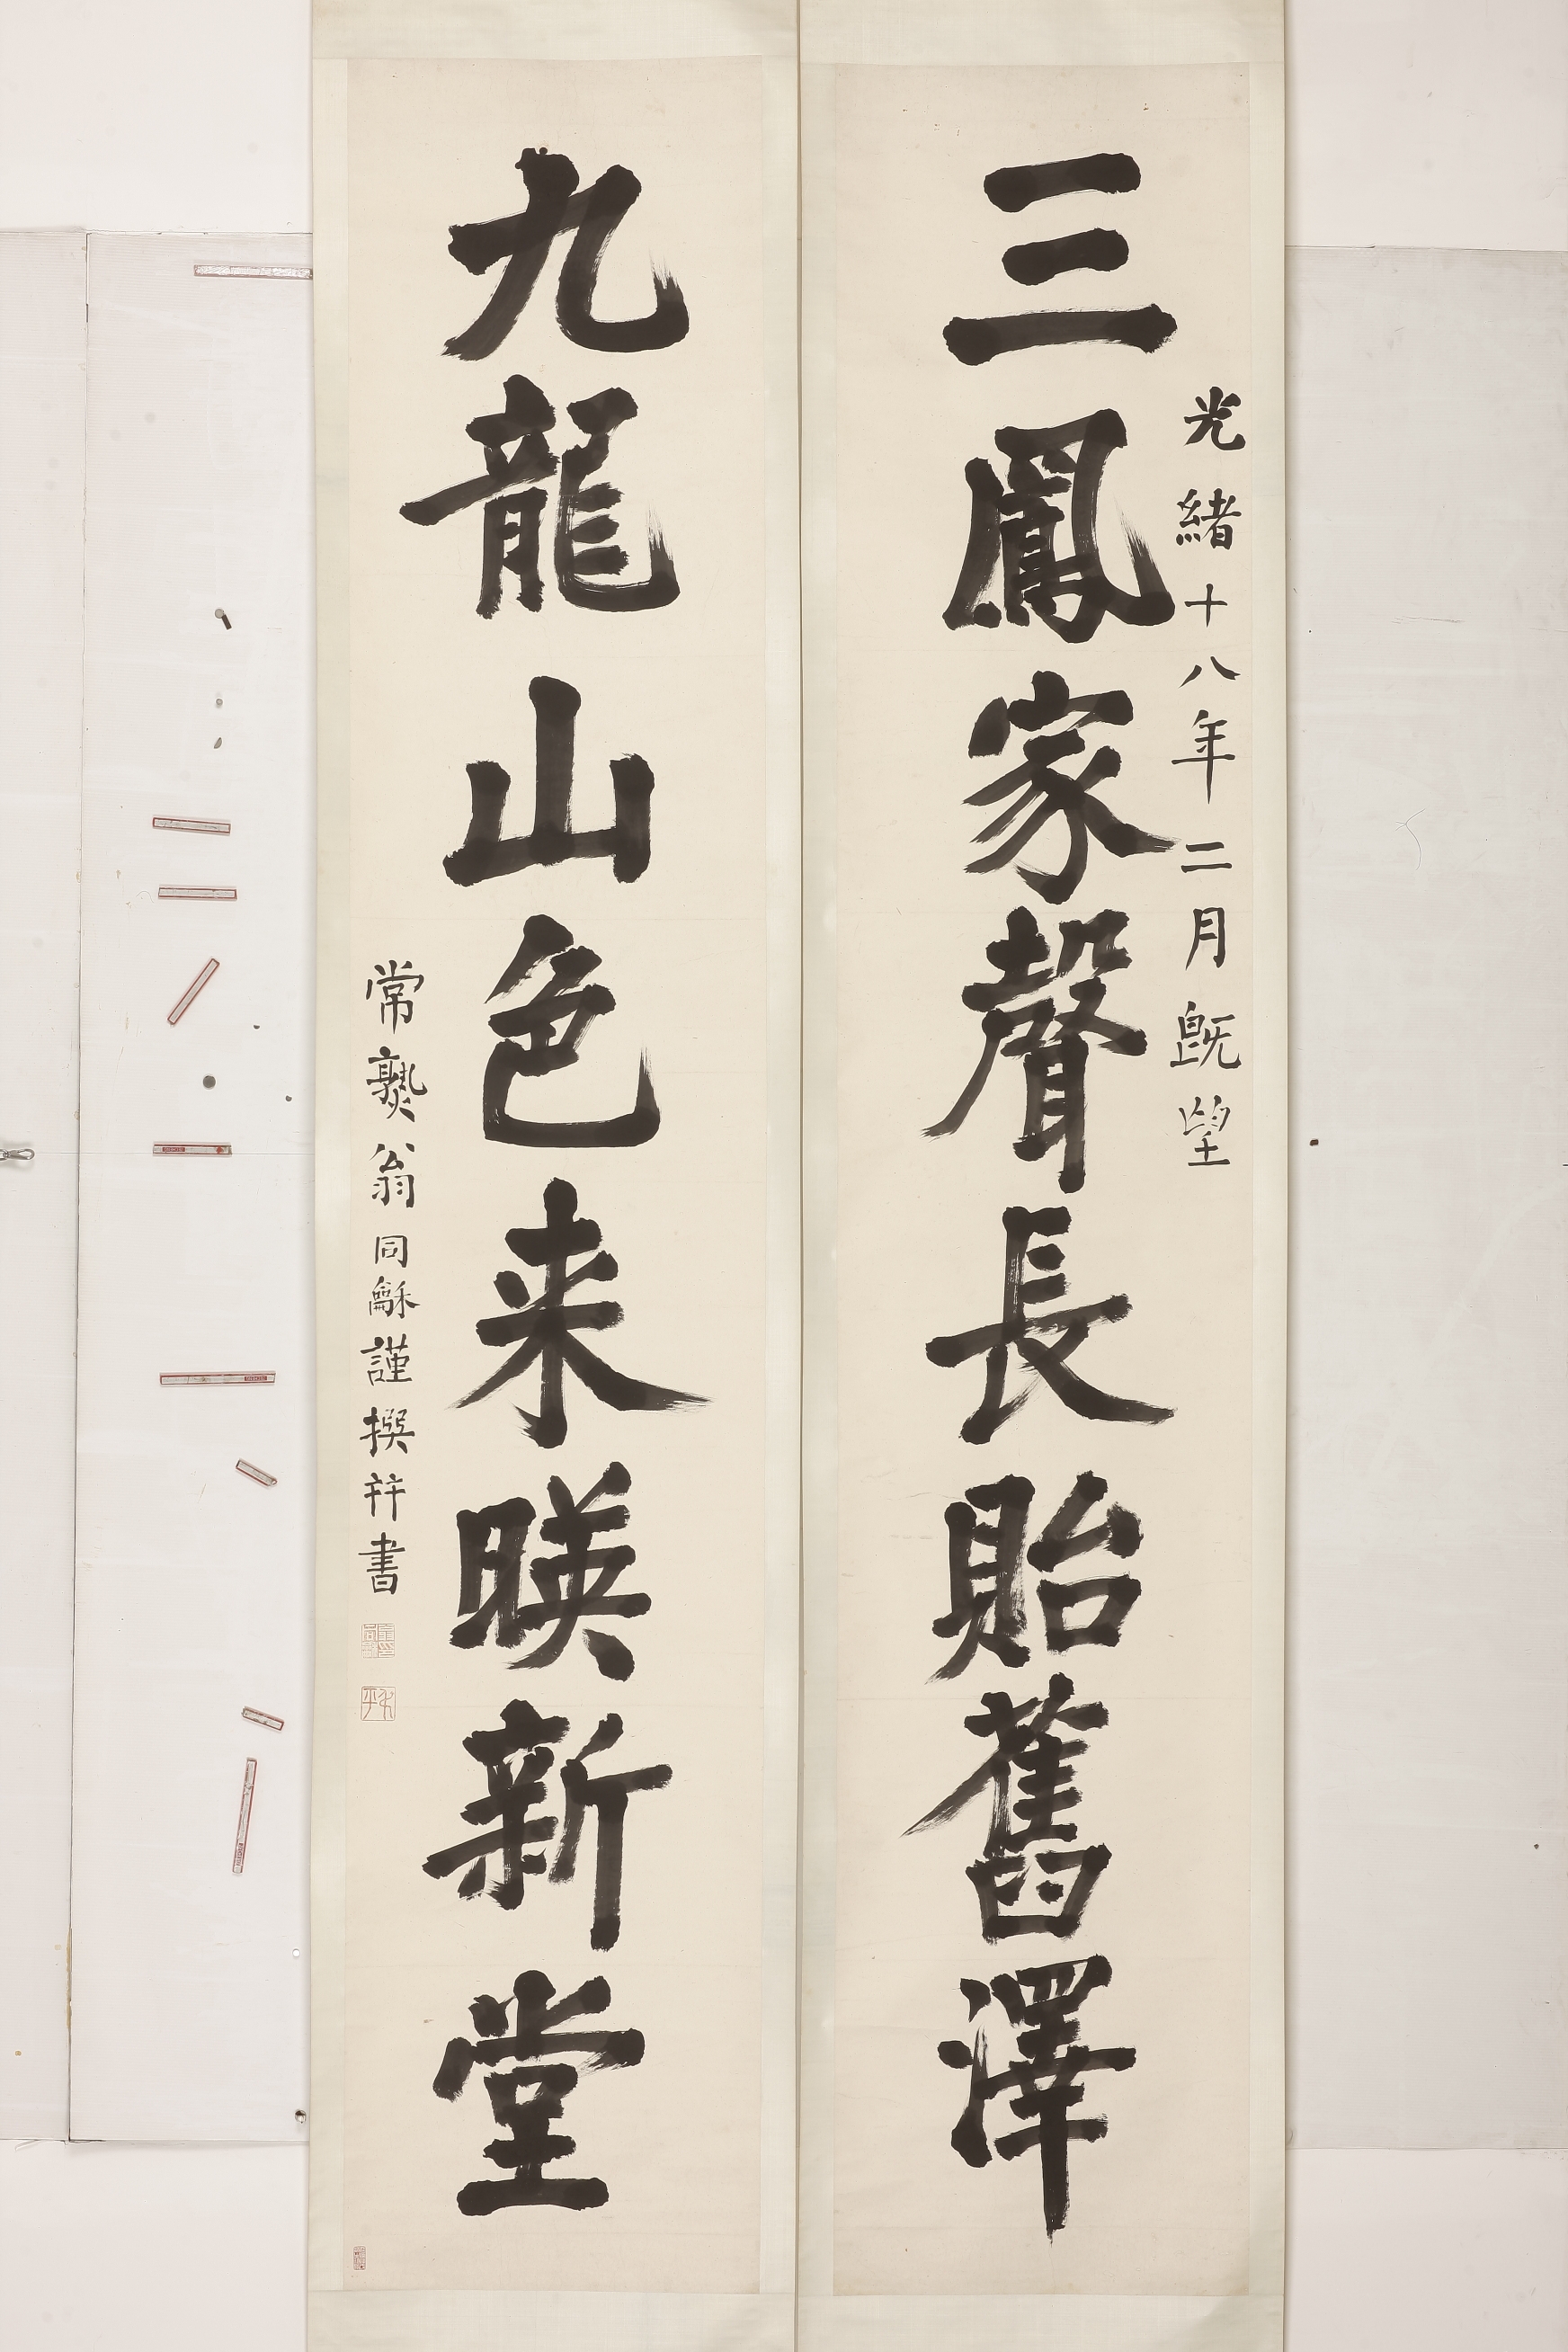 光緒十八年二月既望
三鳳家聲長貽舊澤
九龍山色来暎新堂
常熟翁同龢謹撰并書